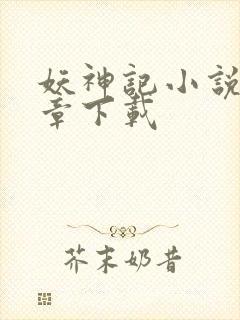 妖神記小說
章下載
芥末奶昔